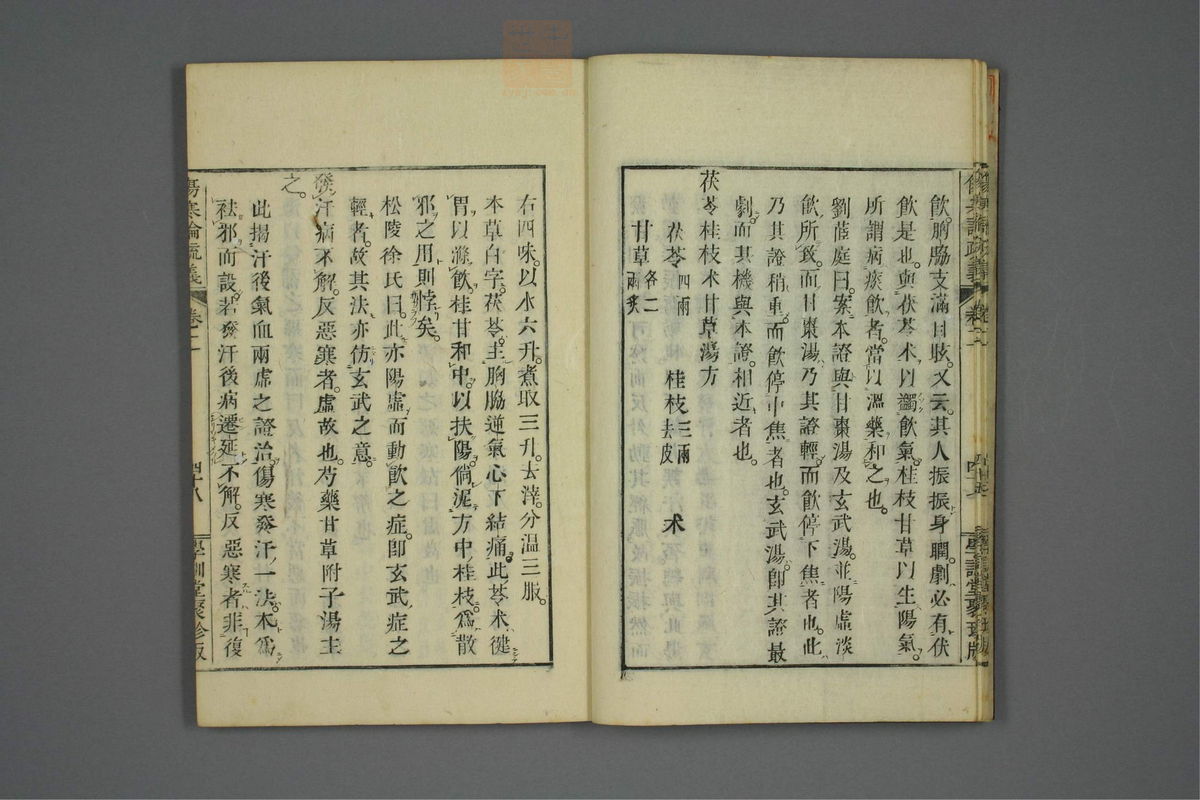 飲。胸脇支滿目眩。又云。其人振振身瞤。劇必有伏
飲是也。與茯苓朮以蠲飲氣。桂枝甘草以生陽氣。
所謂病痰飲者。當以溫藥和之也。
劉茝庭曰。案本證與甘棗湯及玄武湯。並陽虛淡
飲所致。而甘棗湯。乃其證輕。而飲停下焦者也。此
乃其證稍重。而飲停中焦者也。玄武湯。卽其證最
劇。而其機與本證。相近者也。
茯苓桂枝朮甘草湯方
茯苓 四兩 桂枝 三兩去皮 朮
甘草 各二兩炙
右四味。以水六升。煮取三升。去滓。分溫三服。
本草白字。茯苓。主胸脇逆氣心下結痛。此苓朮健
胃以滌飲。桂甘和中。以扶陽。倘泥方中桂枝爲散
邪之用。則悖矣。
松陵徐氏曰。此亦陽虛而動飲之症。卽玄武症之
輕者。故其法亦仿玄武之意。
發汗病不解。反惡寒者。虛故也。芍藥甘草附子湯主
之。
此揭汗後氣血兩虛之證治。傷寒發汗一法。本爲
祛邪而設。若發汗後病遷延不解。反惡寒者。非復
傷寒論疏義 卷二 四十八 學訓堂聚珍版